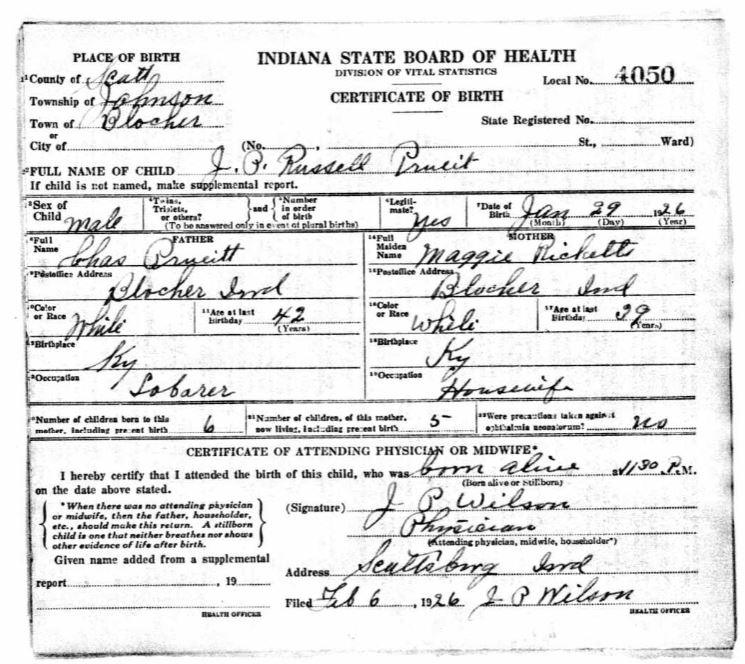 PLACE OF BIRTH
INDIANA STATE BOARD OF HEALTH
DIVISION OF VITAL STATISTICS
Local No. 4050
CERTIFICATE OF BIRTH
1 County of Scott
Township of Johnson
Town of Blocher
or
City of
State Registered No.
(No. , St., Ward)
2 FULL NAME OF CHILD J. P. Russell Prueit
If child is not named, make supplemental report.
3 Sex of Child Male
4 Twins, Triplets, or others? and Number in order of birth
(To be answered only in event of plural births)
6 Legitimate? Yes
7 Date of Birth Jan 29 1926
(Month) (Day) (Year)
FATHER
8 Full Name Chas Prueitt
9 Postoffice Address
Blocher Ind
10 Color or Race White
11 Age at last Birthday 42
(Years)
12 Birthplace
Ky
13 Occupation
Labarer
MOTHER
14 Full Maiden Name Maggie Ricketts
15 Postoffice Address
Blocher Ind
16 Color or Race White
17 Age at last Birthday 39
(Years)
18 Birthplace
Ky
19 Occupation
Housewife
20 Number of children born to this mother, including present birth 6
21 Number of children, of this mother, now living, including present birth 5
22 Were precautions taken against ophthalmia neonatorum? no
CERTIFICATE OF ATTENDING PHYSICIAN OR MIDWIFE*
I hereby certify that I attended the birth of this child, who was born alive at 1130 P. M.
(Born alive or Stillborn)
on the date above stated.
* When there was no attending physician
or midwife, then the father, householder,
etc., should make this return. A stillborn
child is one that neither breathes nor shows
other evidence of life after birth.
(Signature) J P Wilson
Physician
(Attending physician, midwife, householder*)
Given name added from a supplemental
report , 19
HEALTH OFFICER
Address Scottsburg Ind
Filed Feb 6, 1926 J P Wilson
HEALTH OFFICER